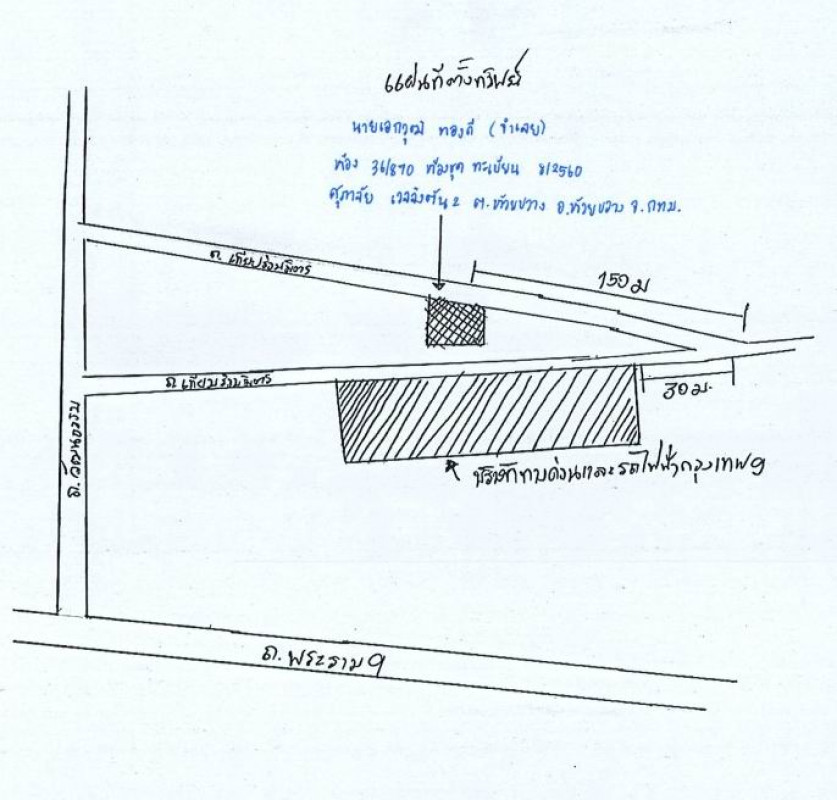 แผนที่ตั้งทรัพย์
นายเอกวุฒิ ทองดี (จำเลย)
ห้อง 36/870 ห้องชุด ทะเบียน 8/2560
ศุภาลัย เวลลิงตัน 2 ต.ห้วยขวาง อ.ห้วยขวาง จ.กทม.
ถ.เทียมร่วมมิตร
150 ม
ถ.เทียมร่วมมิตร
30 ม.
ถ.วัฒนธรรม
บริษัททางด่วนและรถไฟฟ้ากรุงเทพฯ
ถ.พระราม 9